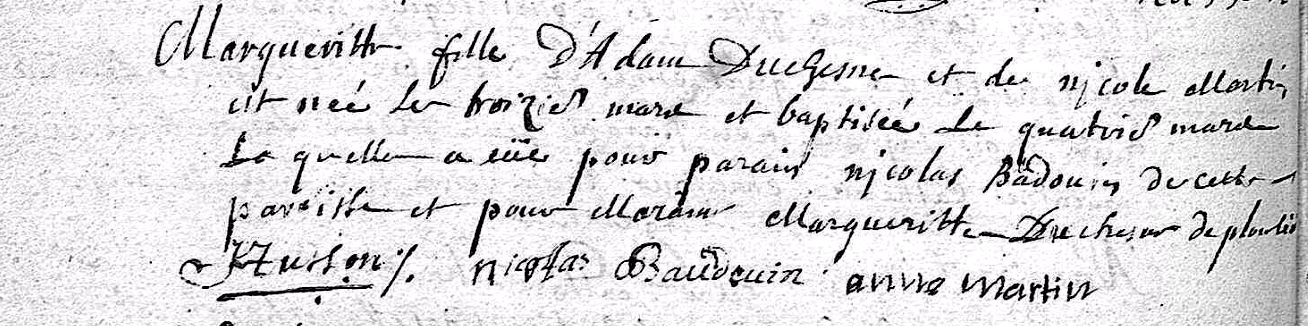 Margueritte fille d'Adam Duchesne et de njcole Martin
est neé le troizie mars et baptiseé Le quatrie mars
La quelle a eüe pour parain njcolas Baudouin de cette
paroisse et pour Maraine Margueritte Duchesne de
Husson nicolas Baudouin anne martin